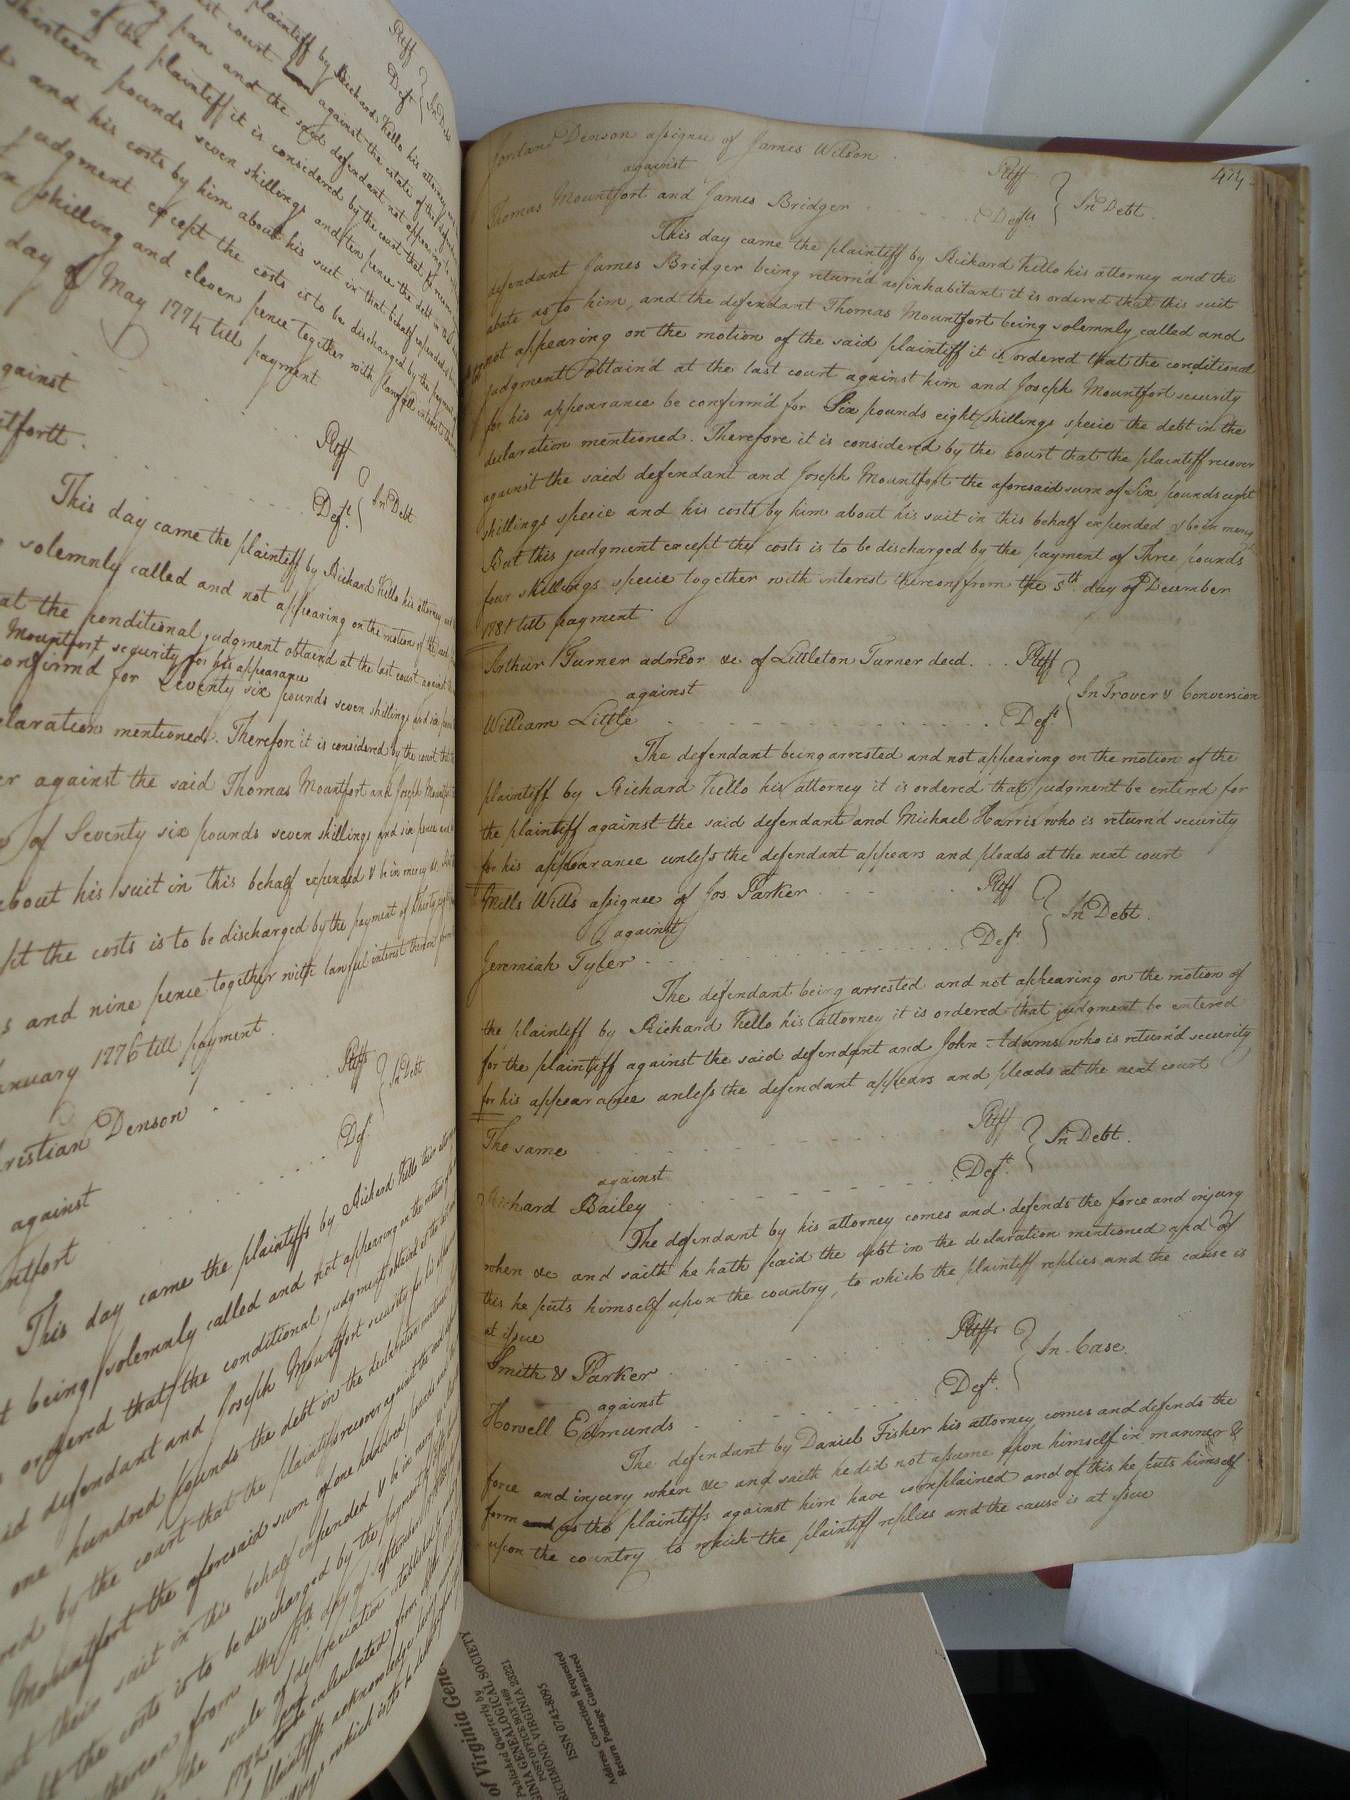 plaintiff by Richard Kello his attorney
court against the estate of the
pan and the said defendant not appearing
of the plaintiff it is considered by the court that he recover
thirteen pounds seven shillings and ten pence the debt in the
and his costs by him about his suit in that behalf expended
judgment except the costs is to be discharged by the payment
shilling and eleven pence together with lawfull interest
day of May 1774 till payment
Pltff
Deft. In Debt
against
Pltff
Deft. In Debt
This day came the plaintiff by Richard Kello his attorney and
solemnly called and not appearing on the motion of the said
at the conditional judgment obtaind at the last court against
Mountfort security for his appearance
confirmd for Seventy six pounds seven shillings and six pence
declaration mentioned. Therefore it is considered by the court that
against the said Thomas Mountfort and Joseph Mountfort
of Seventy six pounds seven shillings and six pence and
about his suit in this behalf expended & be in mercy &c.
the costs is to be discharged by the payment of thirty eight
and nine pence together with lawful interest thereon from
January 1776 till payment.
Christian Denson Pltff
against In Debt
Mountfort Def.
This day came the plaintiffs by Richard Kello their attorney
being solemnly called and not appearing on the motion of
ordered that the conditional judgment obtaind at the last
said defendant and Joseph Mountfort security for his appearance
one hundred pounds the debt in the declaration mentioned
by the court that the plaintiffs recover against the said
Mountfort the aforesaid sum of one hundred pounds and
their suit in this behalf expended & be in mercy &
the costs is to be discharged by the payment of
thereon from the day of September
the scale of depreciation
1782 calculated from
plaintiffs acknowledge
474
Jordan Denson assignee of James Wilson Pltff
against In Debt.
Thomas Mountfort and James Bridger Defts.
This day came the plaintiff by Richard Kello his attorney and the
defendant James Bridger being return'd no inhabitant it is ordered that this suit
abate as to him, and the defendant Thomas Mountfort being solemnly called and
not appearing on the motion of the said plaintiff it is ordered that the conditional
judgment obtain'd at the last court against him and Joseph Mountfort security
for his appearance be confirm'd for Six pounds eight shillings specie the debt in the
declaration mentioned. Therefore it is considered by the court that the plaintiff recover
against the said defendant and Joseph Mountfort the aforesaid sum of Six pounds eight
shillings specie and his costs by him about his suit in this behalf expended & be in mercy
But this judgment except the costs is to be discharged by the payment of Three pounds
four shillings specie together with interest thereon from the 5th. day of December
1781 till payment
Arthur Turner admor &c of Littleton Turner decd. Pltff
against In Trover & Conversion
William Little Deft
The defendant being arrested and not appearing on the motion of the
plaintiff by Richard Kello his attorney it is ordered that judgment be entered for
the plaintiff against the said defendant and Michael Harris who is return'd security
for his appearance unless the defendant appears and pleads at the next court
Mills Wills assignee of Jos. Parker Pltff
against In Debt.
Jeremiah Tyler Deft
The defendant being arrested and not appearing on the motion of
the plaintiff by Richard Kello his attorney it is ordered that judgment be entered
for the plaintiff against the said defendant and John Adams who is return'd security
for his appearance unless the defendant appears and pleads at the next court
The same Pltff
against In Debt.
Richard Bailey Deft.
The defendant by his attorney comes and defends the force and injury
when &c and saith he hath paid the debt in the declaration mentioned and of
this he puts himself upon the country, to which the plaintiff replies and the cause is
at issue
Smith & Parker Pltffs
against In Case.
Howell Edmunds Deft.
The defendant by Daniel Fisher his attorney comes and defends the
force and injury when &c and saith he did not assume upon himself in manner &
form and as the plaintiffs against him have complained and of this he puts himself
upon the country to which the plaintiff replies and the cause is at issue
of Virginia Gene
Published Quarterly by
GINIA GENEALOGICAL SOCIETY
POST OFFICE BOX 7469
RICHMOND, VIRGINIA 23221
ISSN 0743-8095
Address Correction Requested
Return Postage Guaranteed